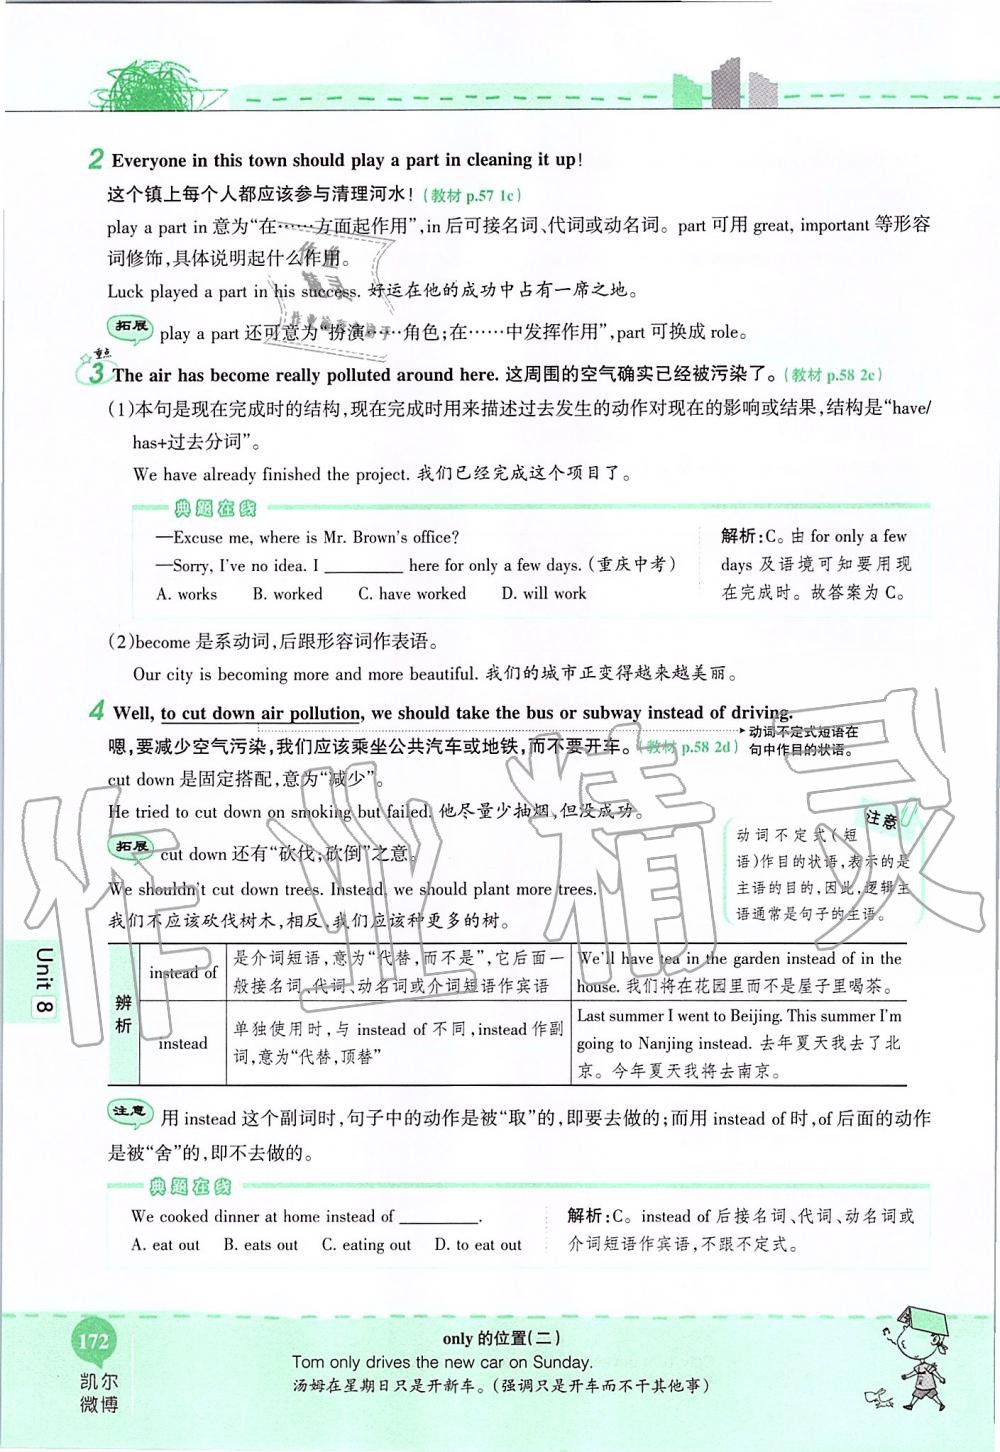 2 Everyone in this town should play a part in cleaning it up!
这个镇上每个人都应该参与清理河水！（教材 p.57 1c）
play a part in 意为“在……方面起作用”,in 后可接名词、代词或动名词。part 可用 great, important 等形容
词修饰,具体说明起什么作用。
Luck played a part in his success. 好运在他的成功中占有一席之地。
拓展 play a part 还可意为“扮演……角色;在……中发挥作用”,part 可换成 role。
重点
3 The air has become really polluted around here. 这周围的空气确实已经被污染了。（教材 p.58 2c）
(1)本句是现在完成时的结构,现在完成时用来描述过去发生的动作对现在的影响或结果,结构是“have/
has+过去分词”。
We have already finished the project. 我们已经完成这个项目了。
典题在线
—Excuse me, where is Mr. Brown's office?
—Sorry, I've no idea. I ________ here for only a few days.（重庆中考）
A. works B. worked C. have worked D. will work
解析:C。由 for only a few
days 及语境可知要用现
在完成时。故答案为 C。
(2)become 是系动词,后跟形容词作表语。
Our city is becoming more and more beautiful. 我们的城市正变得越来越美丽。
4 Well, to cut down air pollution, we should take the bus or subway instead of driving.
嗯,要减少空气污染,我们应该乘坐公共汽车或地铁,而不要开车。（教材 p.58 2d）
动词不定式短语在
句中作目的状语。
cut down 是固定搭配,意为“减少”。
He tried to cut down on smoking but failed. 他尽量少抽烟,但没成功。
拓展 cut down 还有“砍伐;砍倒”之意。
We shouldn't cut down trees. Instead, we should plant more trees.
我们不应该砍伐树木,相反,我们应该种更多的树。
注意
动词不定式(短
语)作目的状语,表示的是
主语的目的,因此,逻辑主
语通常是句子的主语。
辨析
instead of
是介词短语,意为“代替,而不是”,它后面一
般接名词、代词、动名词或介词短语作宾语
We'll have tea in the garden instead of in the
house. 我们将在花园里而不是屋子里喝茶。
instead
单独使用时,与 instead of 不同,instead 作副
词,意为“代替,顶替”
Last summer I went to Beijing. This summer I'm
going to Nanjing instead. 去年夏天我去了北
京。今年夏天我将去南京。
注意 用 instead 这个副词时,句子中的动作是被“取”的,即要去做的;而用 instead of 时,of 后面的动作
是被“舍”的,即不去做的。
典题在线
We cooked dinner at home instead of ________.
A. eat out B. eats out C. eating out D. to eat out
解析:C。instead of 后接名词、代词、动名词或
介词短语作宾语,不跟不定式。
Unit 8
172
凯尔
微博
only 的位置(二)
Tom only drives the new car on Sunday.
汤姆在星期日只是开新车。（强调只是开车而不干其他事）
作业精灵